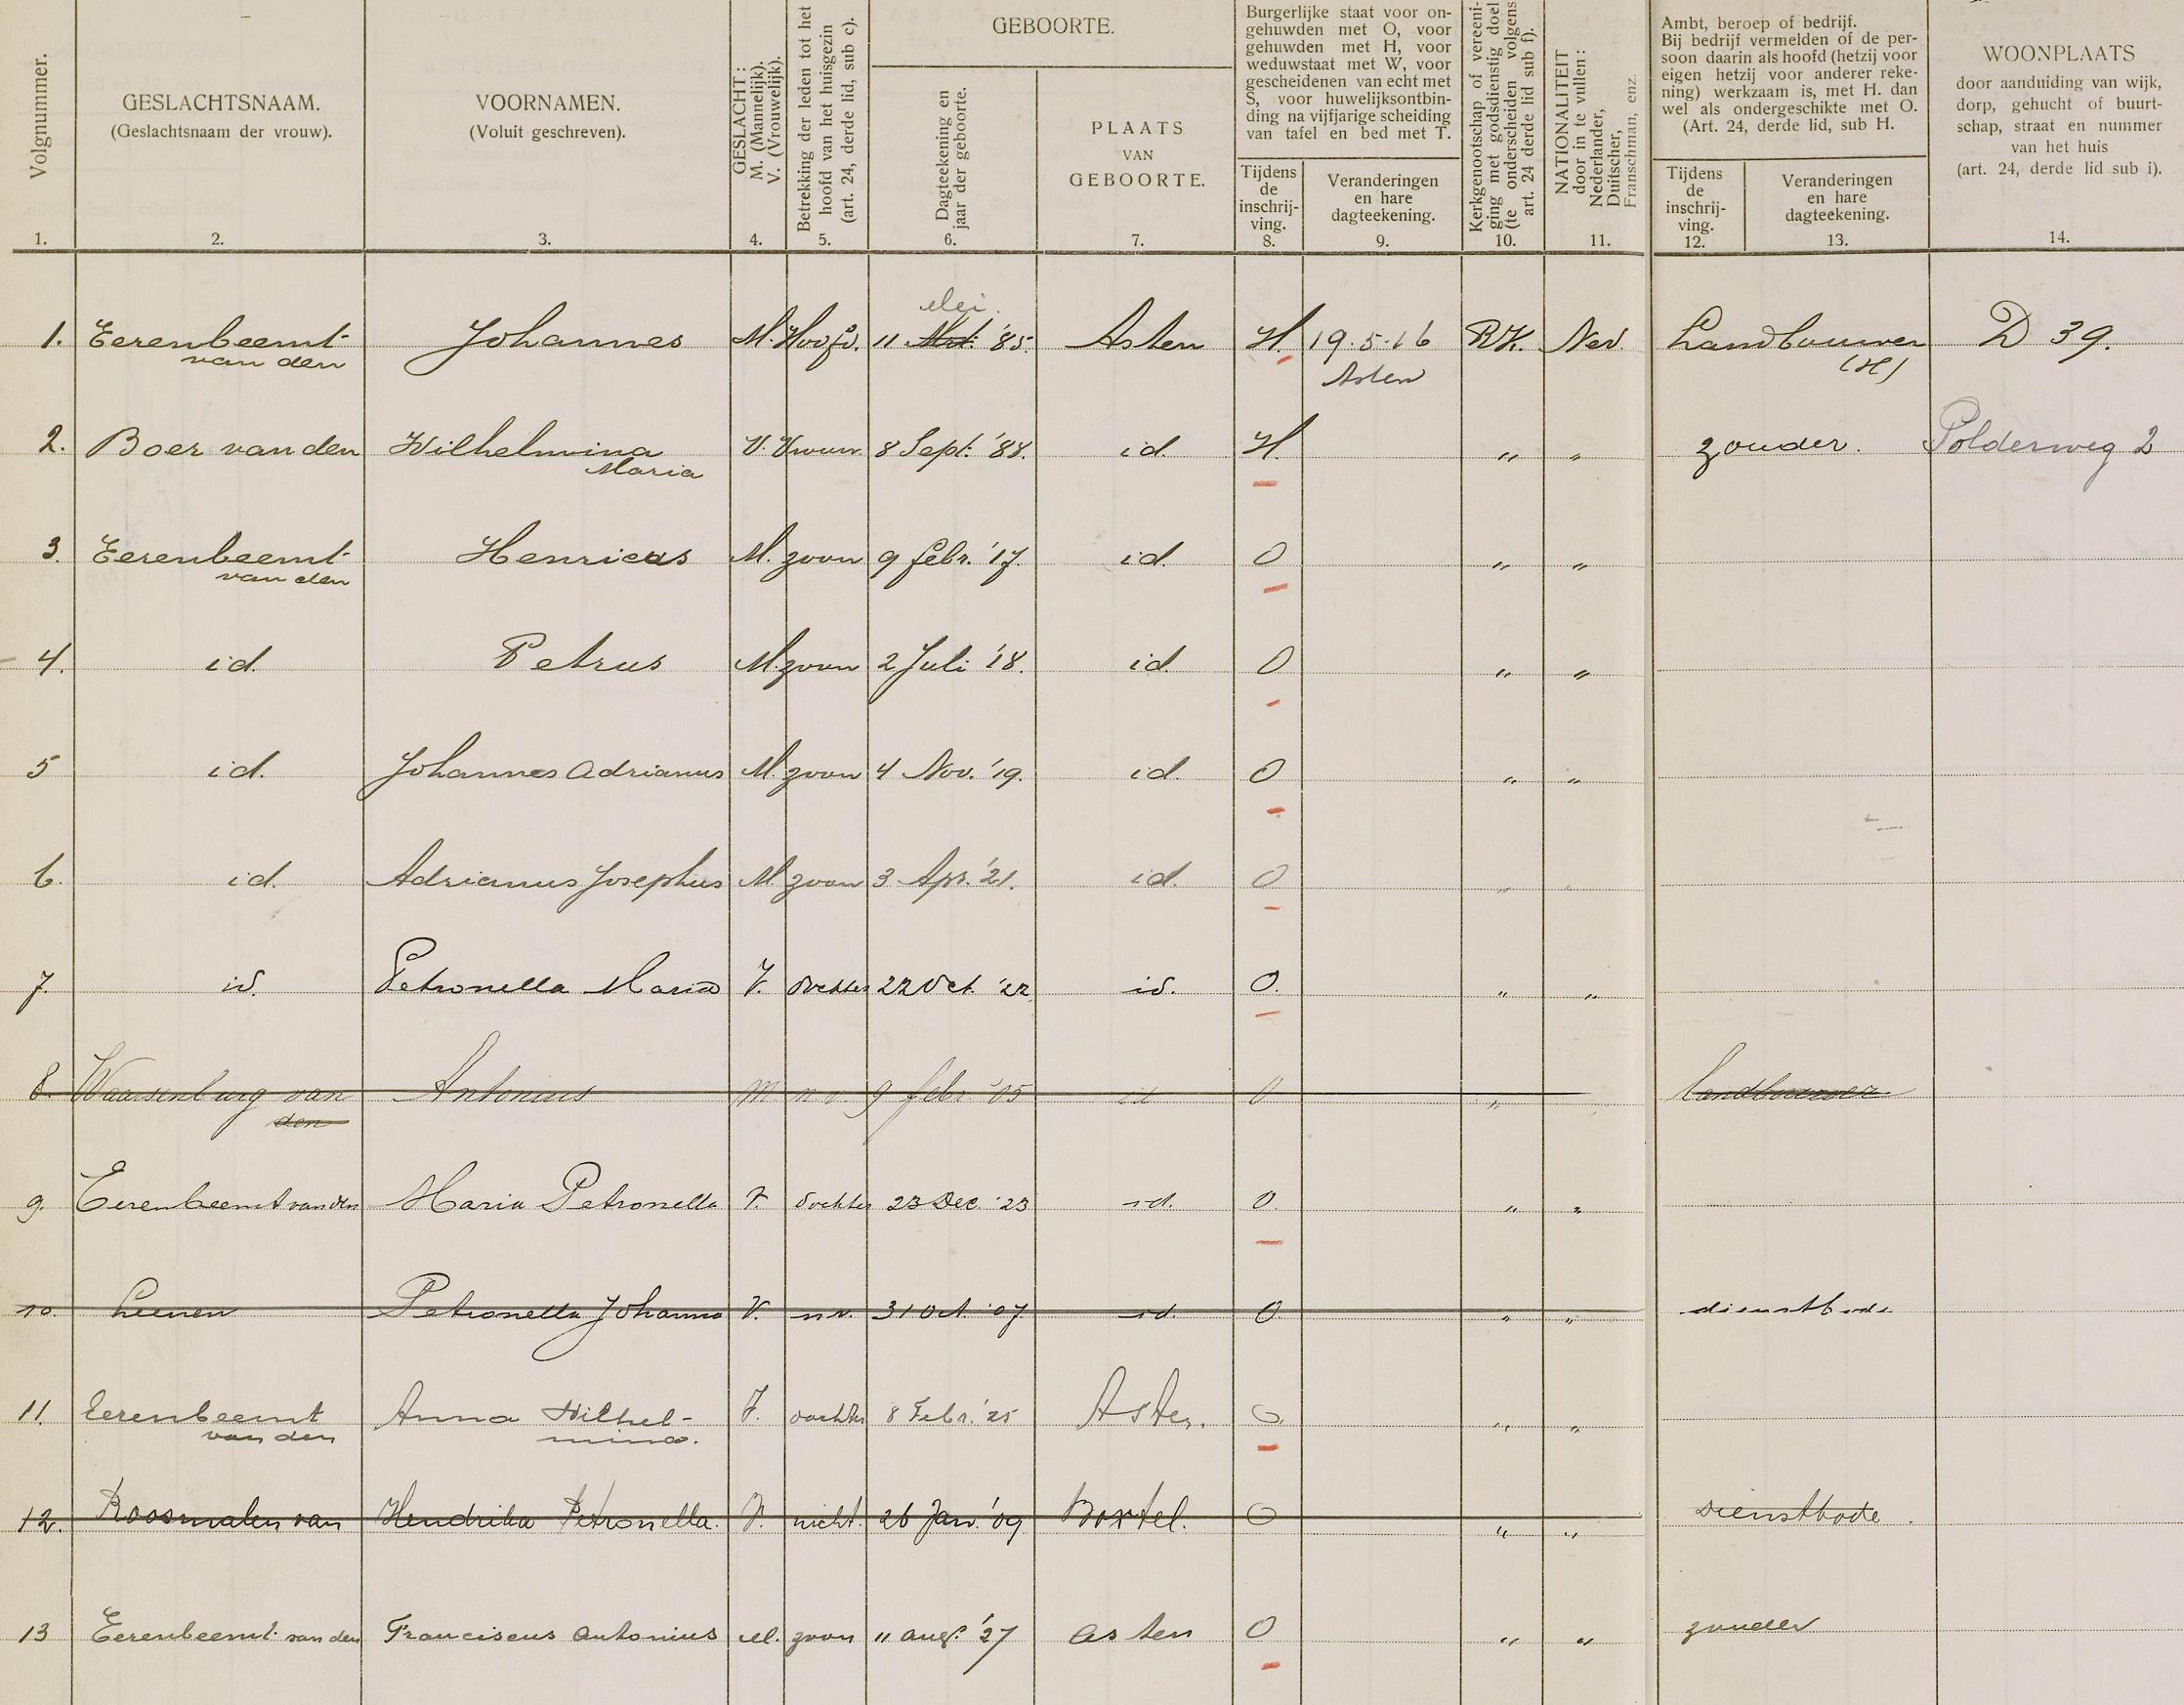 Volgnummer.
1.
GESLACHTSNAAM.
(Geslachtsnaam der vrouw).
2.
VOORNAMEN.
(Voluit geschreven).
3.
GESLACHT:
M. (Mannelijk).
V. (Vrouwelijk).
4.
Betrekking der leden tot het
hoofd van het huisgezin
(art. 24, derde lid, sub c).
5.
GEBOORTE.
Dagteekening en
jaar der geboorte.
6.
PLAATS
VAN
GEBOORTE.
7.
Burgerlijke staat voor on-
gehuwden met O, voor
gehuwden met H, voor
weduwstaat met W, voor
gescheidenen van echt met
S, voor huwelijksontbin-
ding na vijfjarige scheiding
van tafel en bed met T.
Tijdens
de
inschrij-
ving.
8.
Veranderingen
en hare
dagteekening.
9.
Kerkgenootschap of vereeni-
ging met godsdienstig doel
(te onderscheiden volgens
art. 24 derde lid sub f).
10.
NATIONALITEIT
door in te vullen:
Nederlander,
Duitscher,
Franschman, enz.
11.
Ambt, beroep of bedrijf.
Bij bedrijf vermelden of de per-
soon daarin als hoofd (hetzij voor
eigen hetzij voor anderer reke-
ning) werkzaam is, met H. dan
wel als ondergeschikte met O.
(Art. 24, derde lid, sub H.
Tijdens
de
inschrij-
ving.
12.
Veranderingen
en hare
dagteekening.
13.
WOONPLAATS
door aanduiding van wijk,
dorp, gehucht of buurt-
schap, straat en nummer
van het huis
(art. 24, derde lid sub i).
14.
Mei
1. Eerenbeemt Johannes M. Hoofd. 11 Mrt. '85. Asten H. 19.5.16 R.K. Ned. Landbouwer D 39.
van den Asten (H)
2. Boer van den Wilhelmina V. Vrouw 8 Sept. '88. id. H. " " zonder. Polderweg 2
Maria
3. Eerenbeemt Henricus M. zoon 9 febr. '17. id. O " "
van den
4. id. Petrus M. zoon 2 Juli '18. id. O " "
5 id. Johannes Adrianus M. zoon 4 Nov. '19. id. O " "
6. id. Adrianus Josephus M. zoon 3 Apr. '21. id. O " "
7. id. Petronella Maria V. dochter 22 Oct. '22 id. O. " "
8. Waarsenburg van Antonius M n.v. 9 febr '05 id O " " landbouwer
den
9. Eerenbeemt van den Maria Petronella V. dochter 23 Dec. '23 id. O. " "
10. Leenen Petronella Johanna V. n.v. 31 Oct. '07 id. O. " " dienstbode
11. Eerenbeemt Anna Wilhel- V. dochter 8 Febr. '25 Asten. O " "
van den mina.
12. Roosmalen van Hendrika Petronella. V. nicht. 26 Jan. '09 Boxtel. O " " Dienstbode.
13 Eerenbeemt van den Franciscus Antonius M. zoon 11 aug. '27 Asten O " " zonder